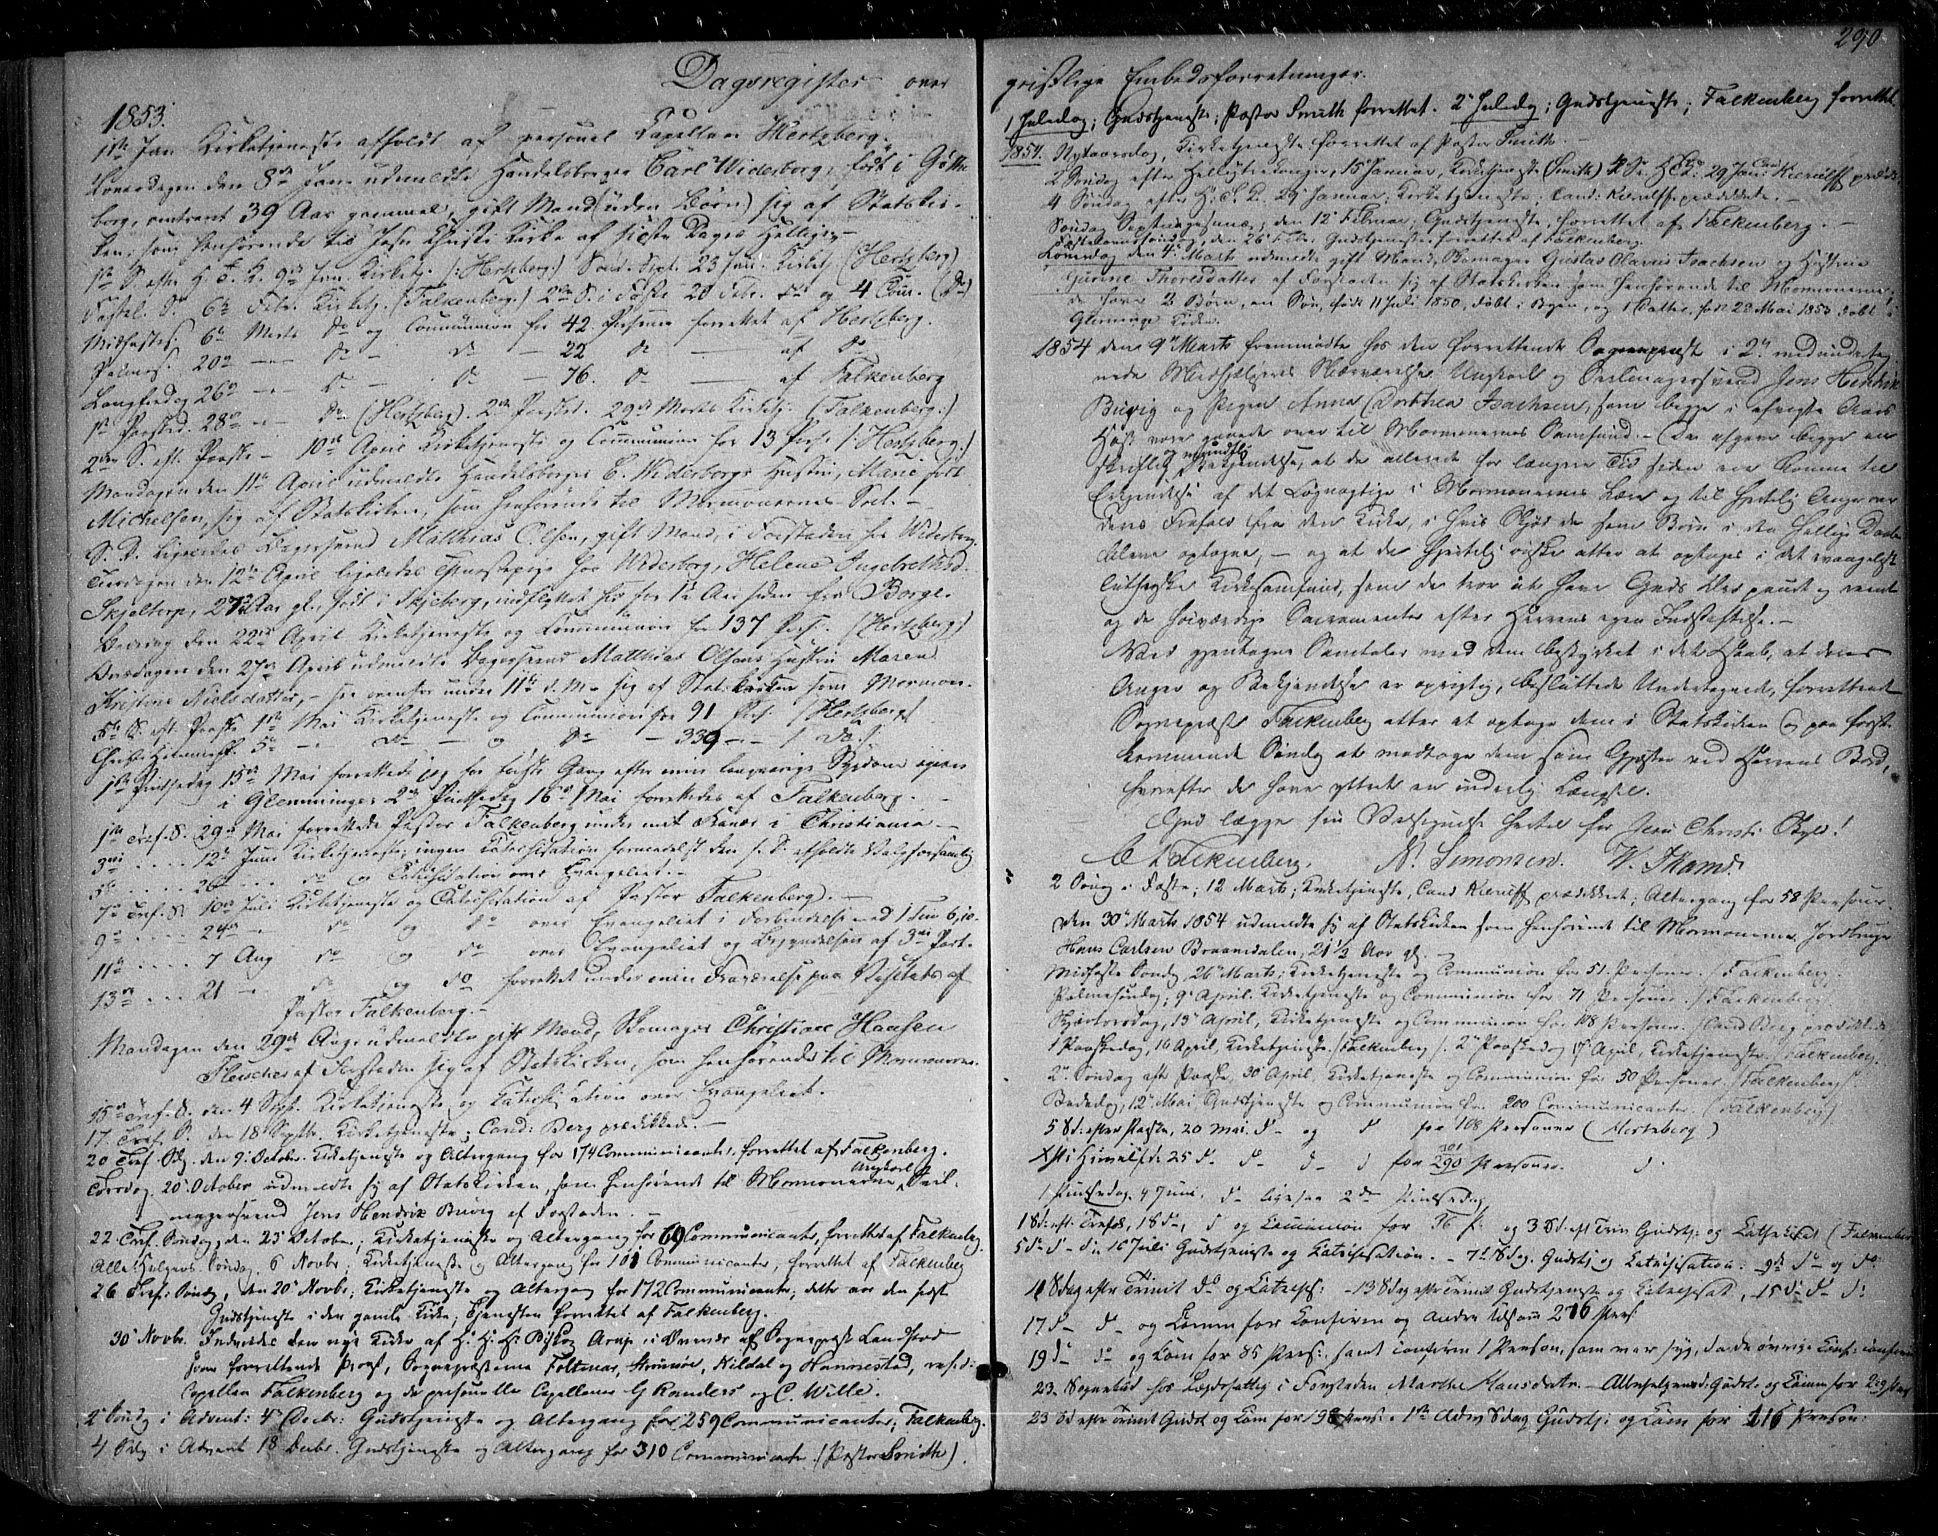 Dagsregister over
1853.
1ste Jan Kirketjeneste afholdt af personel Capellan Hertzberg.
Løverdagen den 8de Jan. udmeldte Handelsborger Carl Widerborg, født i Gøthe-
borg, omtrent 39 Aar gammel, gift Mand (uden Børn) sig af Statskir-
ken, som henhørende til Jesu Christi Kirke af sidste Dages Hellige.
1ste S. efter H. 3 K. 9de Jan. Kirketj. (:Hertzberg:) Sønd. Sept. 23 Jan. Kirketj (Hertzberg)
Fastel. S. 6te Febr. Kirketj. (Falkenberg:) 2den S. i Faste 20 Febr. do og 4 Com. (do)
Midfastes. 6te Marts do og Communion for 42 Personer forrettet af Hertzberg.
Palmes. 20de — do — do — 22 do — af do
Langfredag 25de — do — do — 76. do — af Falkenberg
1ste Paasked. 28de — do (Hertzberg). 2den Paasked. 29de Marts Kirketj. (Falkenberg:)
2den S. eft. Paaske — 10de April Kirketjeneste og Communion for 13 Pers. (:Hertzberg:)
Mandagen den 11te April udmeldte Handelsborger C. Widerborgs Hustru, Marie født
Michelsen, sig af Statskirken, som henhørende til Mormonernes Sect. —
S. D. ligeledes Bagersvend Matthias Olsen, gift Mand, i Forstaden hos Widerborg.
Tirsdagen den 12te April ligeledes Tjenestepige hos Widerborg, Helene Ingebrethsd.
Skjeltorp, 27 Aar gl., født i Skjeberg, indflyttet hid for Aar siden fra Borge.
Bededag den 22de April Kirketjeneste og Communion for 137 Pers. (Hertzberg:)
Onsdagen den 27de April udmeldte Bagersvend Matthias Olsens Hustru Maren
Kristine Nielsdatter, — see ovenfor under 11te d. M. — sig af Statskirken som Mormon.
5te S. eft. Paaske 1ste Mai Kirketjeneste og Communion for 91 Pers. (Hertzberg)
Christi Himmelf. 5te — do — og do — 339 — (do.)
1ste Pintsedag 15de Mai forrettede jeg for første Gang efter min langvarige Sygdom igjen
i Glemminge; 2den Pintsedag 16de Mai forrettedes af Falkenberg. —
1ste Tref. S. 29de Mai forrettede Pastor Falkenberg under mit Fravær i Christiania —
3die .... 12te Juni Kirketjeneste; ingen Catechisation formedelst den s. D. afholdte Valgforsamling
5te .... 26 .... do og Catechisation over Evangeliet. —
7de Tref. S. 10de Juli Kirketjeneste og Catechisation af Pastor Falkenberg. —
9de .... 24de — do og do over Evangeliet i Forbindelse med 1 Tim 6, 10.
11te .... 7 Aug do og do over Evangeliet og Begyndelsen af 3die Part.
13de ... 21 — do og do forrettet under min Fraværelse paa Visitats af
Pastor Falkenberg. —
Mandagen den 29de Aug. udmeldte gift Mand, Skomager Christian Hansen
Fleischer af Forstaden sig af Statskirken, som henhørende til Mormonerne.
15de Tref. S. den 4 Sept. Kirketjeneste og Catechisation over Evangeliet.
17. Tref. S. den 18 Septbr. Kirketjeneste; Cand: Berg prædikede. —
20 Tref. Sdg. den 9. October. Kirketjeneste og Altergang for 174 Communicanter, forrettet af Falkenberg.
Torsdag 20' October udmeldte sig af Statskirken, som henhørende til Mormonerne, Ungkarl Seil-
magersvend Jens Hendrik Buvig af Forstaden. —
22 Tref. Søndag, den 23 Octobr.; Kirketjeneste og Altergang for 69 Communicanter, forrettet af Falkenberg.
Alle Helgens Søndag 6 Novbr; Kirketjeneste og Altergang for 101 Communicanter; forrettet af Falkenberg
26 Tref. Søndg, den 20' Novbr; Kirketjeneste og Altergang for 172 Communicanter; dette var den sidste
Gudstjeneste i den gamle Kirke; Tjenesten forrettet af Falkenberg.
30' Novbr. Indviedes den nye Kirke af Hs. H. Hr. Biskop Arup i Overvær af Sognepræst Landstad
som forrettende Provst, Sognepræsterne Foltmar, Strømsøe, Hildal og Hannestad, resid:
Capellan Falkenberg og de personelle Capellaner G Randers og C. Wille.
2' Søndg i Advent: 4' Decbr: Gudstjeneste og Altergang for 259 Communicanter, Falkenberg.
4 Sdg i Advent 18 Decbr. Gudstjeneste og Altergang for 310 Communicanter. (Pastor Smith).
290
geistlige Embedsforretninger.
1 Juledag; Gudstjeneste; Pastor Smith forrettet. 2' Juledg; Gudstjeneste; Falkenberg forrettet
1854. Nytaarsdag, Kirketjeneste forrettet af Pastor Smith. —
2 Søndag efter Hellig 3 Konger, 15 Januar, Kirketjeneste (Smith) 29 Jan: Cand Kierulff prædik.
4 Søndag efter H. 3 K. 29 Januar, Kirketjeneste; Cand: Kierulff prædikede. —
Søndag Septuagesima, den 12' Februar, Gudstjeneste, forrettet af Falkenberg. —
Fastelavnssøndag, den 26' Febr. Gudstjeneste forrettet af Falkenberg.
Løverdag den 4' Marts udmeldte gift Mand, Skomager Gustav Olavus Isachsen og Hustru
Gurine Thoresdatter af Forstaden sig af Statskirken som henhørende til Mormonerne.
de have 2 Børn, en Søn, født 11 Juli 1850, døbt i Byen, og 1 Datter, født 28 Mai 1853 døbt i
Glemminge Kirke.
1854 den 9' Marts fremmødte hos den forrettende Sognepræst i 2' medunderteg-
nede Medhjælperes Nærværelse Ungkarl og Seilmagersvend Jens Hendrik
Buvig og Pigen Anna Dorthea Isachsen, som begge i afvigte Aars
Høst vare gaaede over til Mormonernes Samfund. — De afgave begge en
skriftlig og mundtlig Bekjendelse, at de allerede for længere Tid siden ere komne til
Erkjendelse af det Løgnagtige i Mormonernes Lære og til hjertelig Anger over
deres Frafald fra den Kirke, i hvis Skjød de som Børn i den hellige Daab
bleve optagne, — og at de hjertelig ønske atter at optages i det evangelisk
lutherske Kirkesamfund, som de troe at have Guds Ord puurt og reent
og de høiværdige Sacramenter efter Herrens egen Indstiftelse. —
Ved gjentagne Samtaler med dem bestyrket i det Haab, at deres
Anger og Bekjendelse er oprigtig, besluttede Undertegnede, forrettende
Sognepræst Falkenberg atter at optage dem i Statskirken og paa først-
kommende Søndag at modtage dem som Gjæster ved Herrens Bord,
hvorefter de have yttret en inderlig Længsel.
Gud lægge sin Velsignelse hertil for Jesu Christi Skyld!
C Falkenberg. N. Simonsen. W. Thams.
2 Søndg i Faste; 12 Marts; Kirketjeneste, Cand Kierulff prædikede; Altergang for 58 Personer.
Den 30' Marts 1854 udmeldte sig af Statskirken som henhørende til Mormonerne Jordbruger
Hans Carlsen Braanedalen, 21 1/2 Aar gl. —
Midfaste Søndg 26' Marts; Kirketjeneste og Communion for 51 Personer. (Falkenberg).
Palmesøndag; 9' April. Kirketjeneste og Communion for 71 Personer. (Falkenberg)
Skjærtorsdag, 13' April, Kirketjeneste og Communion for 108 Personer. (Cand Berg prædikede)
1' Paaskedag, 16 April, Kirketjeneste. (Falkenberg). 2' Paaskedag 17' April, Kirketjeneste. (Falkenberg.
2' Søndag efter Paaske, 30' April, Kirketjeneste og Communion for 50 Personer. (Falkenberg)
Bededg, 12' Mai Gudstjeneste og Communion for 200 Communicanter. (Falkenberg)
5 Sd: efter Paaske, 20 Mai. do og do for 108 Personer (Hertzberg)
Xsti Himmelf: d. 25 do do do do for 301 290 Personer. do.
1 Pintsedag. 4 Juni. do ligesaa 2den Pintsedag
1 Sd: eft: Trefold., 18 do, do og Communion for 76 P: og 3 Sd: eft Trin Gudstj: og Cathechisat (Falkenberg
5 do do den 16 Juli Gudstjeneste og Catechisation. — 7de Sdag. Gudstj og Catechisation: 9de do og do
11 Sdag efter Trinit do og Catechs: — 13 Sdag efter Trinit Gudstjeneste og Catechisat, 15 do do do:
17 do do og Comm for Confirm og Andre tilsam 276 Pers
19 do do og Com for 85 Pers:, samt confirm 1 Person, som var syg, da de øvrige bleve confirm
23. Sognebud hos Lægdslem i Forstaden Marthe Hansdatr. — Allehelgensd: Gudst. og Comm for
23 Sd efter Trinit Gudst og Com for 198 Pers: 1ste Adv: Sdag Gudstj: og Com for 216 Person: